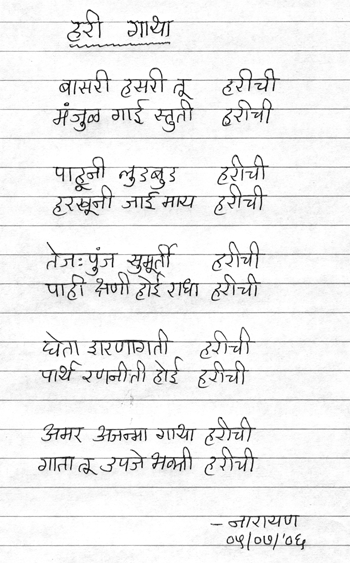 हरी गाथा
बासरी हसरी तू हरीची
मंजुळ गाई स्तुती हरीची
पाहूनी लुडबुड हरीची
हरखूनी जाई माय हरीची
तेजःपुंज सुमूर्ती हरीची
पाही क्षणी होई राधा हरीची
घेता शरणागती हरीची
पार्थ रणनीती होई हरीची
अमर अजन्मा गाथा हरीची
गाता तू उपजे भक्ती हरीची
- नारायण
०५/०७/'०६